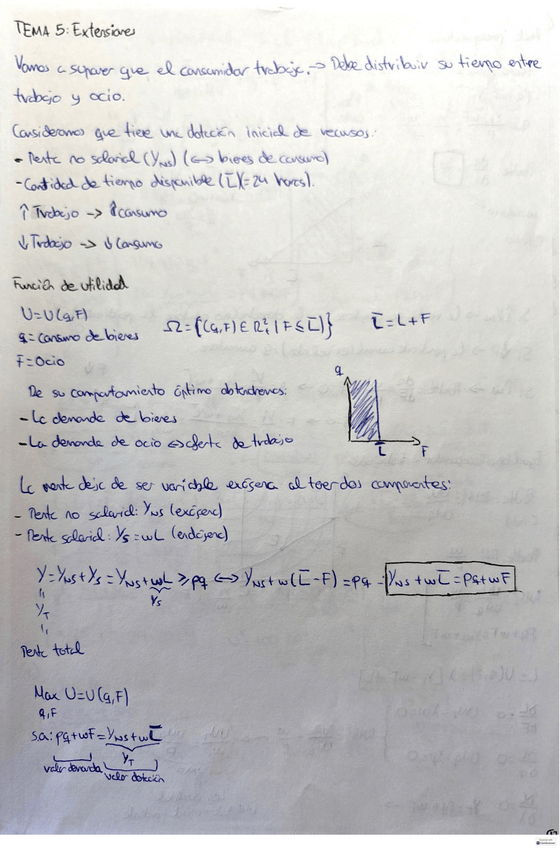 TEMA 5: Extensiones
Vamos a suponer que el consumidor trabaja. → Debe distribuir su tiempo entre
trabajo y ocio.
Consideramos que tiene una dotación inicial de recursos:
- Renta no salarial (Y_NS) (↔ bienes de consumo)
- Cantidad de tiempo disponible (L̄)(=24 horas).
↑ Trabajo → ↑ Consumo
↓ Trabajo → ↓ Consumo
Función de utilidad
U=U(q,F)
q=consumo de bienes
Ω={(q,F)∈R²₊ | F≤L̄)}
L̄=L+F
F=Ocio
De su comportamiento óptimo obtendremos:
- La demanda de bienes
- La demanda de ocio ↔ oferta de trabajo
q
L̄
F
La renta deja de ser variable exógena al tener dos componentes:
- Renta no salarial: Y_NS (exógena)
- Renta salarial: Y_S = wL (endógena)
Y=Y_NS+Y_S=Y_NS+wL≥pq ↔ Y_NS+w(L̄-F)=pq - Y_NS+wL̄=pq+wF
Y_S
"
Y_T
"
Renta total
Max U=U(q,F)
q,F
s.a: pq+wF=Y_NS+wL̄
Y_T
valor demanda
valor dotación